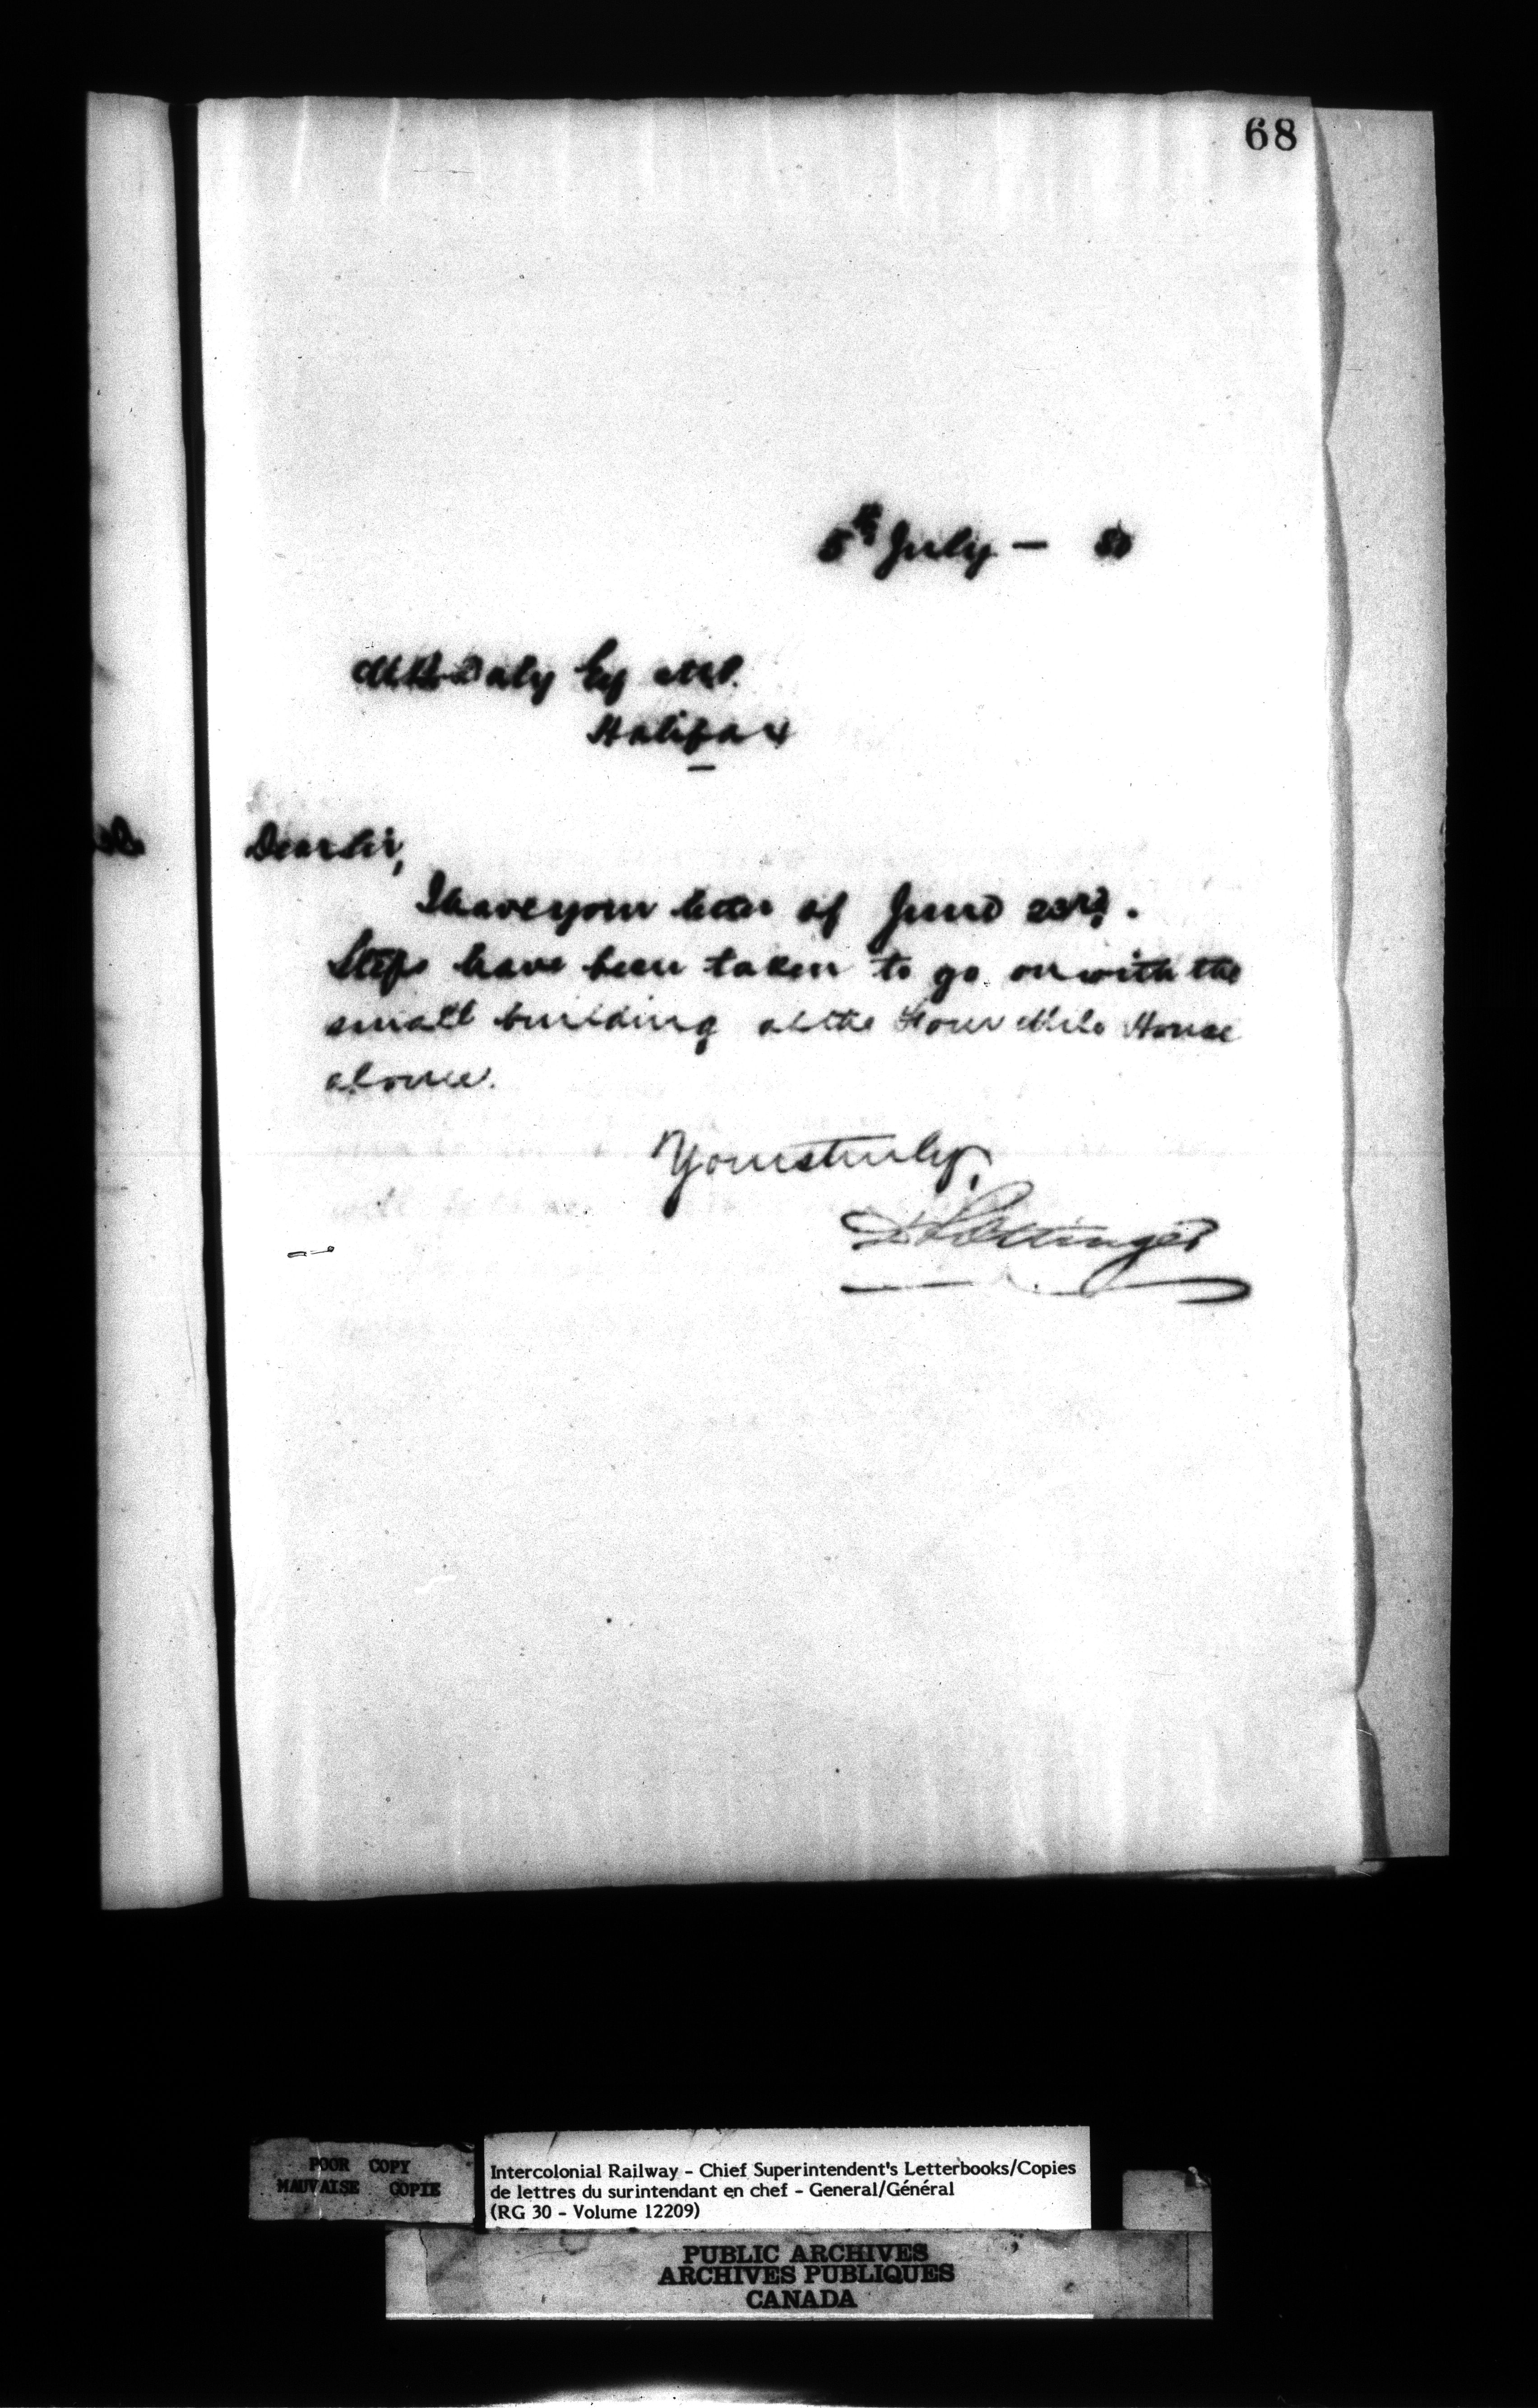 68
5th July - 80
M.B. Daly Esq M.P.
Halifax
Dear Sir,
I have your letter of June 23rd.
Steps have been taken to go on with the
small building at the Four Mile House
at once.
Yours truly,
D Pottinger
POOR COPY
MAUVAISE COPIE
Intercolonial Railway - Chief Superintendent's Letterbooks/Copies
de lettres du surintendant en chef - General/Général
(RG 30 - Volume 12209)
PUBLIC ARCHIVES
ARCHIVES PUBLIQUES
CANADA